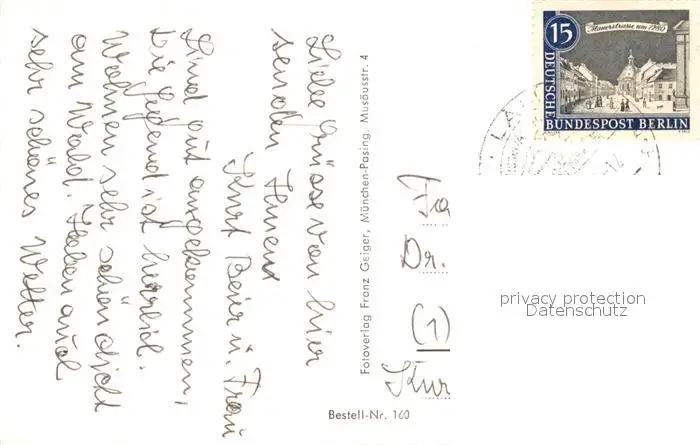 Liebe Grüsse von hier
senden Ihnen
Kurt Beier u. Frau
Sind gut angekommen,
die Gegend ist herrlich.
Wohnen sehr schön dicht
am Wald. Haben auch
sehr schönes Wetter.
Fotoverlag Franz Geiger, München-Pasing, Musäusstr. 4
Bestell-Nr. 160
15
Mauerstrasse um 1780
DEUTSCHE
BUNDESPOST BERLIN
Fa
Dr.
(1)
Kur
privacy protection
Datenschutz